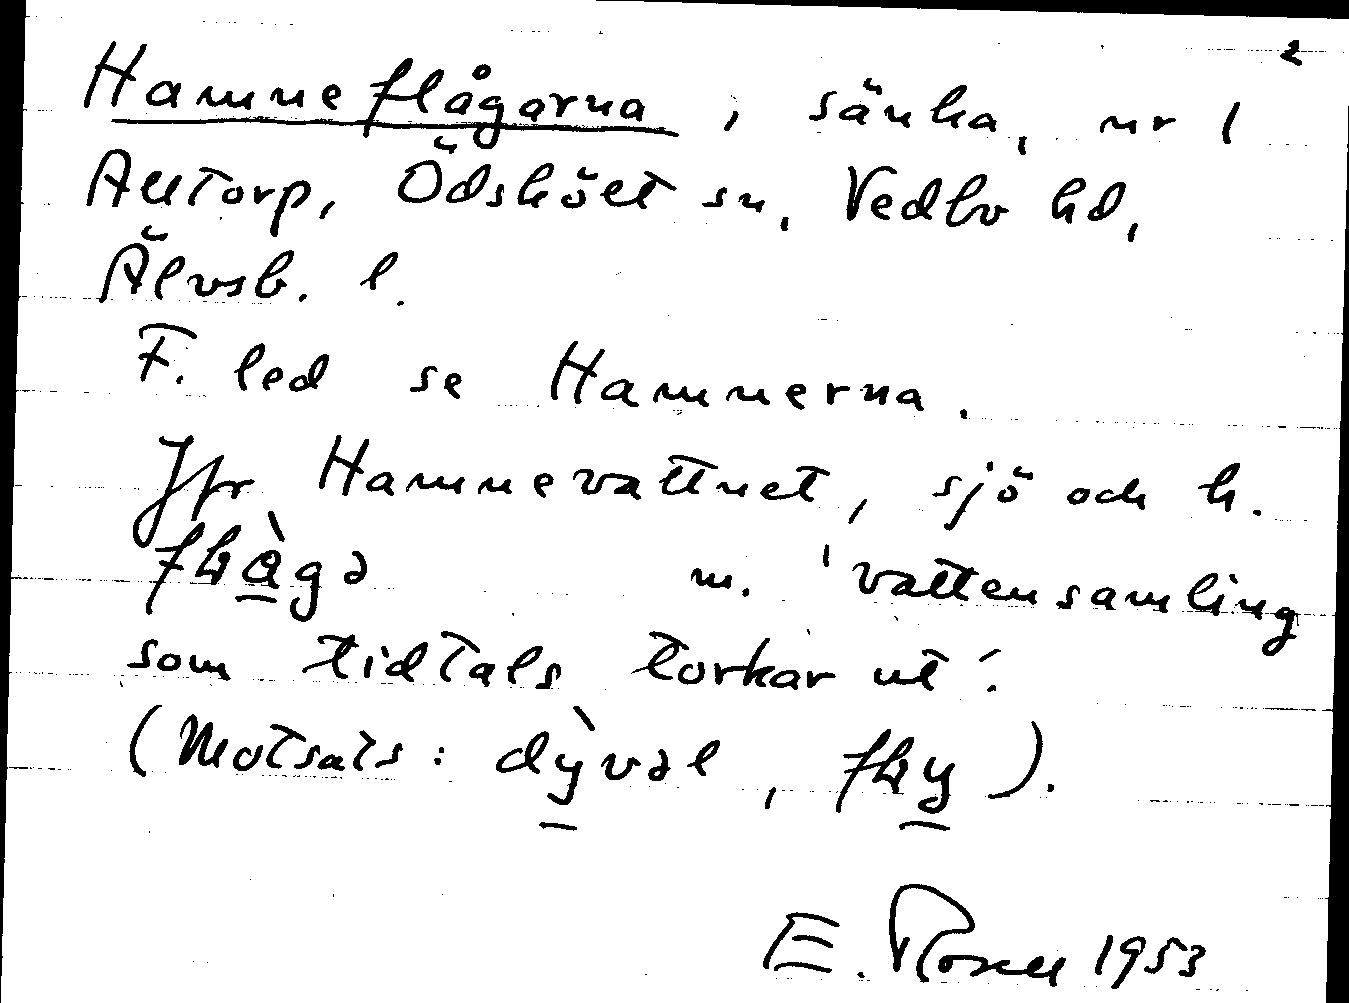 2
Hamneflågarna, sänka, nr 1
Alltorp, Ödskölt sn, Vedbo hd,
Älvsb. l.
F. led se Hamnerna.
Jfr Hamnevattnet, sjö och h.
m. 'vattensamling
som tidtals torkar ut'.
(Motsats: dỳvəl, ).
E. Rosell 1953